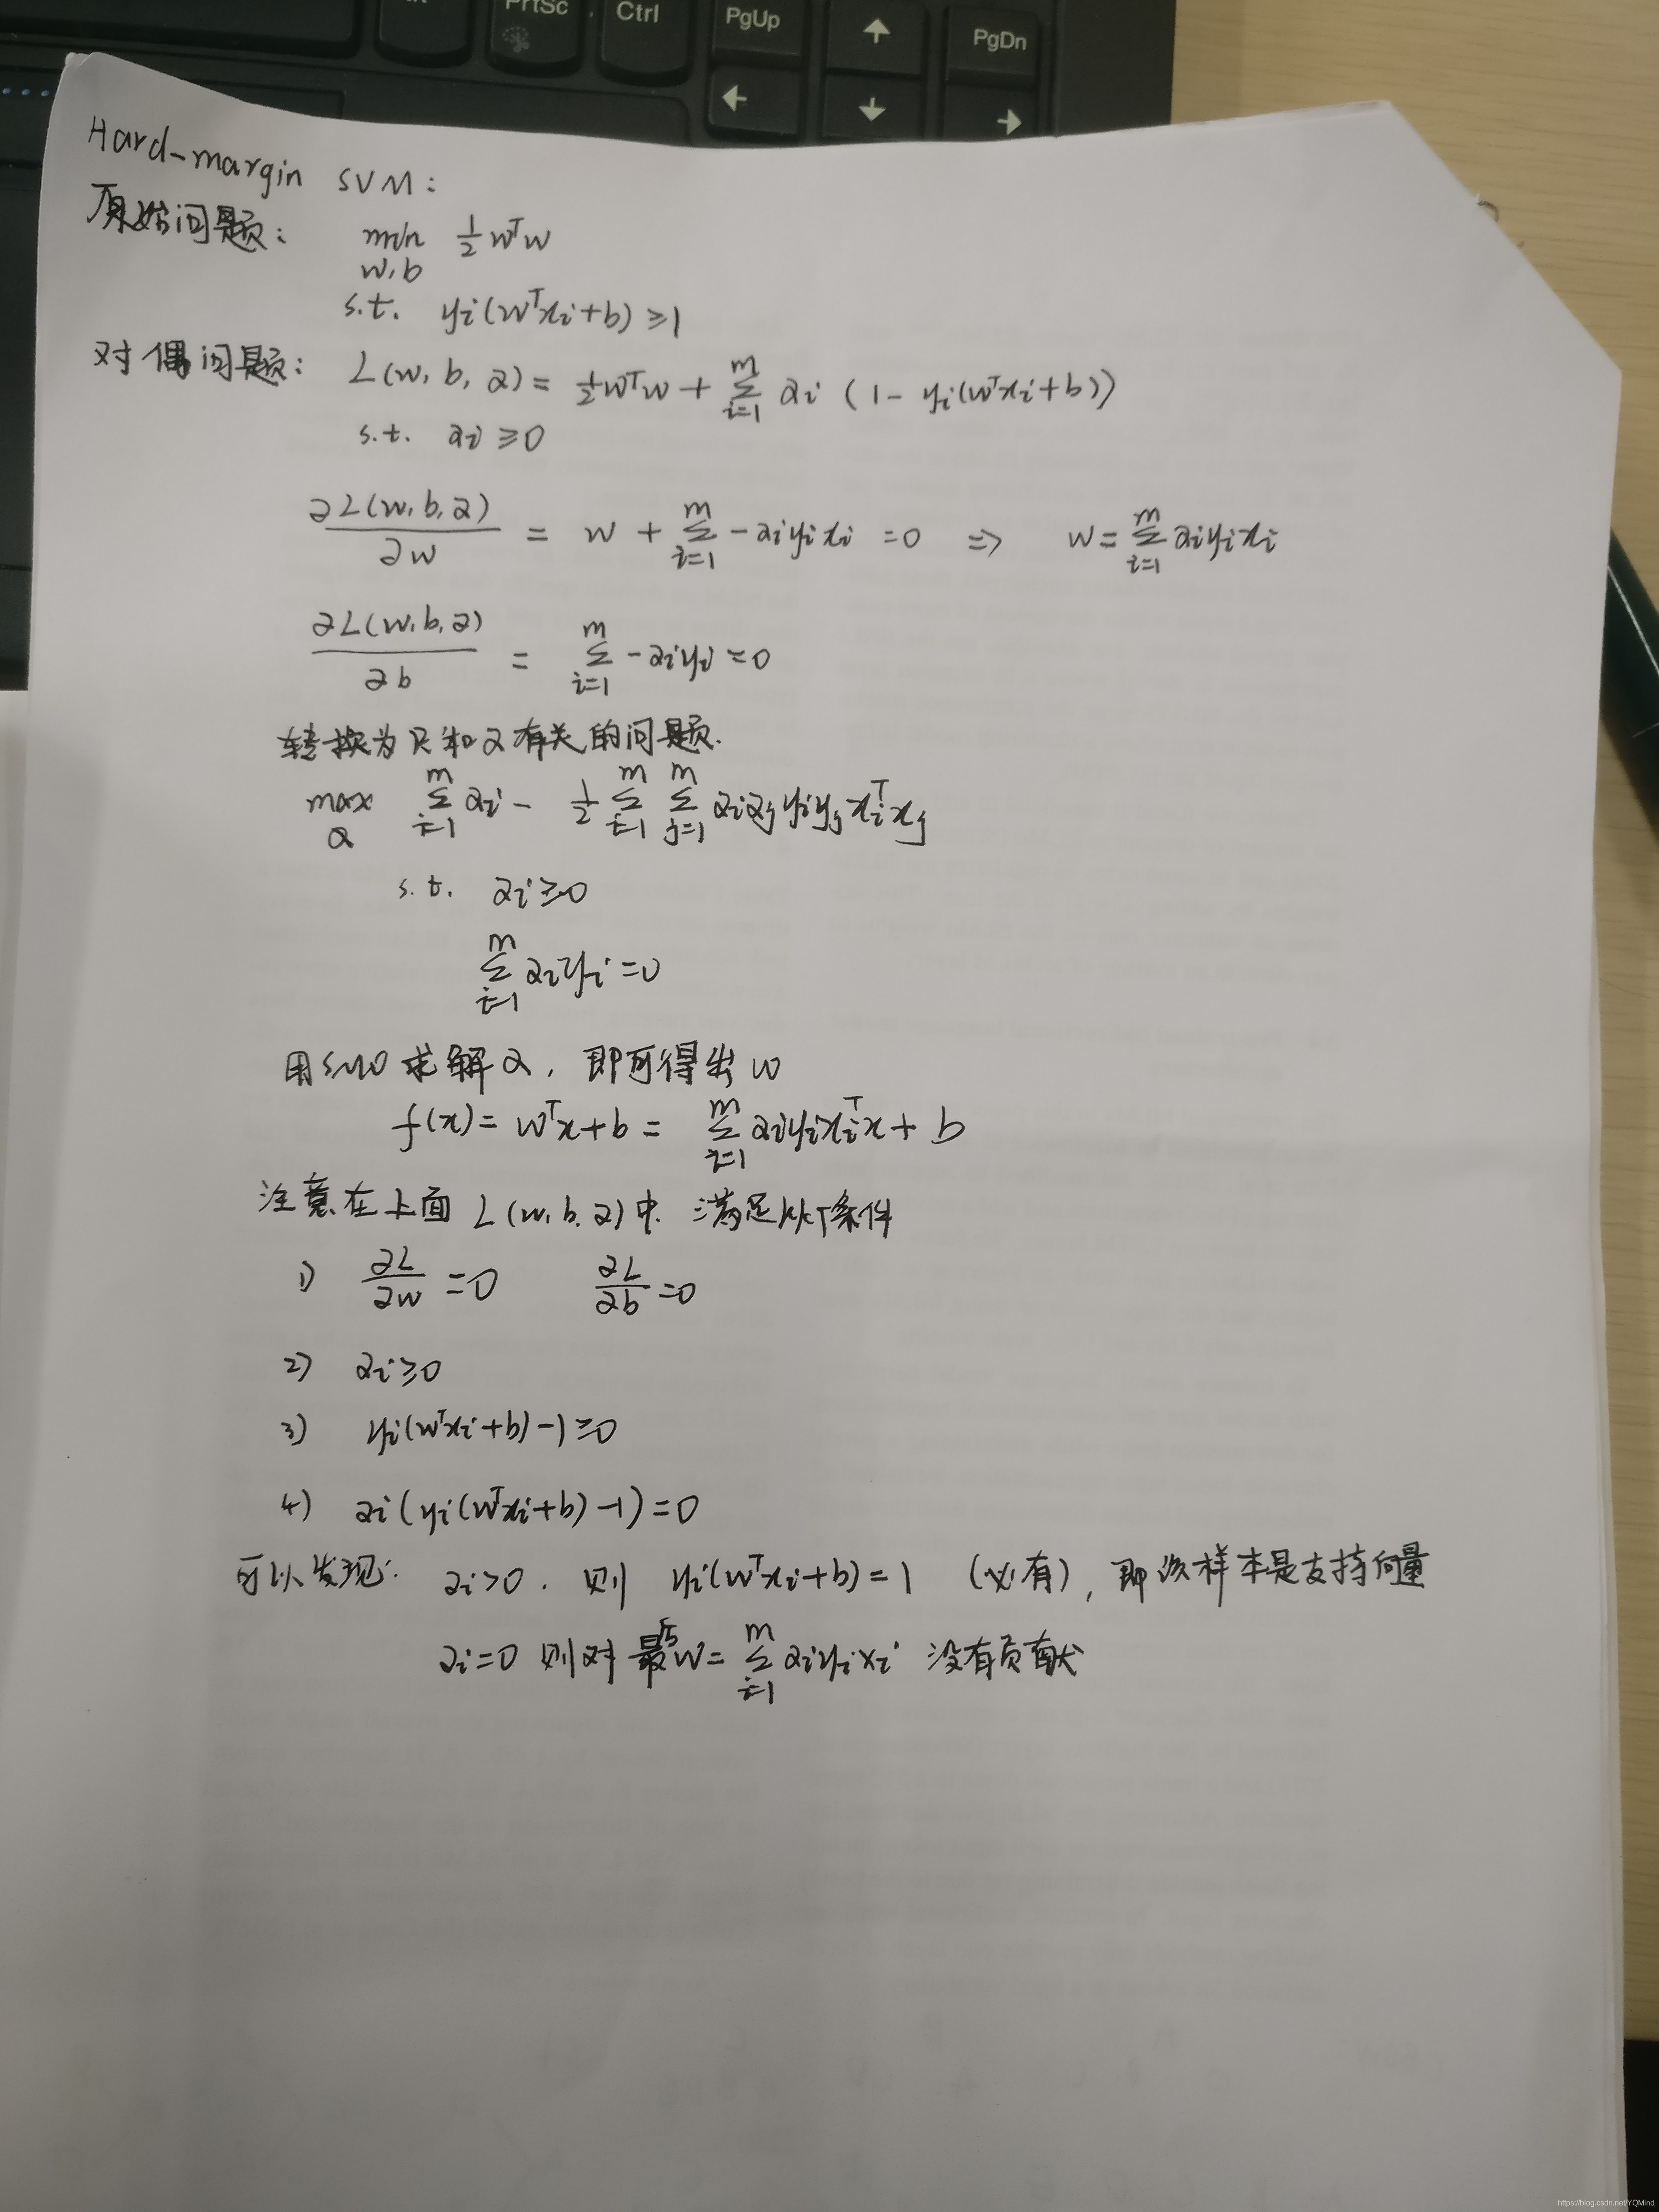 PrtSc Ctrl PgUp ↑ PgDn
← ↓ →
Hard-margin SVM:
原始问题: min ½ wᵀw
w,b
s.t. yᵢ(wᵀxᵢ+b) ≥1
对偶问题: L(w,b,α) = ½wᵀw + Σᵢ₌₁ᵐ αᵢ (1- yᵢ(wᵀxᵢ+b))
s.t. αᵢ ≥0
∂L(w,b,α)/∂w = w + Σᵢ₌₁ᵐ -αᵢyᵢxᵢ =0 ⇒ w= Σᵢ₌₁ᵐ αᵢyᵢxᵢ
∂L(w,b,α)/∂b = Σᵢ₌₁ᵐ -αᵢyᵢ =0
转换为只和α有关的问题.
max Σᵢ₌₁ᵐ αᵢ - ½ Σᵢ₌₁ᵐ Σⱼ₌₁ᵐ αᵢαⱼyᵢyⱼxᵢᵀxⱼ
α
s.t. αᵢ≥0
Σᵢ₌₁ᵐ αᵢyᵢ =0
用SMO求解α, 即可得出w
f(x)= wᵀx+b = Σᵢ₌₁ᵐ αᵢyᵢxᵢᵀx + b
注意在上面 L(w,b,α)中, 满足KKT条件
1) ∂L/∂w =0 ∂L/∂b =0
2) αᵢ≥0
3) yᵢ(wᵀxᵢ+b)-1≥0
4) αᵢ(yᵢ(wᵀxᵢ+b)-1)=0
可以发现: αᵢ>0, 则 yᵢ(wᵀxᵢ+b)=1 (必有), 即该样本是支持向量
αᵢ=0 则对最后w= Σᵢ₌₁ᵐ αᵢyᵢxᵢ 没有贡献
https://blog.csdn.net/YQMind